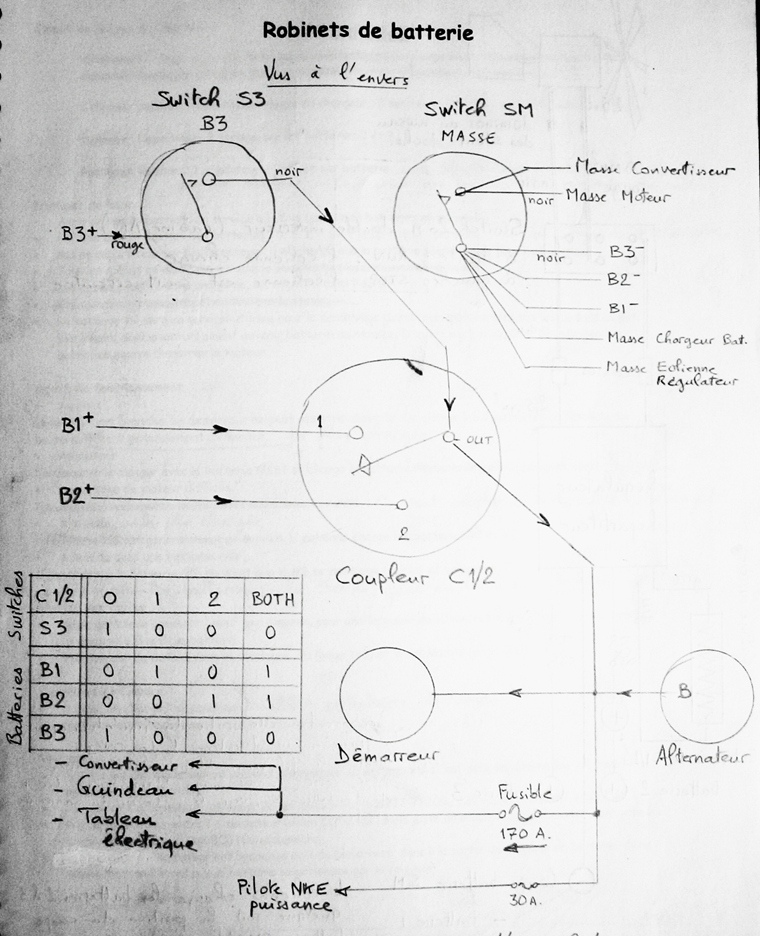 Robinets de batterie
Vus à l'envers
Switch S3
B3
noir
B3+
rouge
Switch SM
MASSE
Masse Convertisseur
noir
Masse Moteur
noir
B3-
B2-
B1-
Masse Chargeur Bat.
Masse Eolienne
Régulateur
B1+
1
OUT
B2+
2
Coupleur C1/2
Switches
C1/2 0 1 2 BOTH
S3 1 0 0 0
Batteries
B1 0 1 0 1
B2 0 0 1 1
B3 1 0 0 0
Démarreur
B
Alternateur
- Convertisseur
- Guindeau
- Tableau
électrique
Fusible
170 A.
Pilote NKE
puissance
30A.